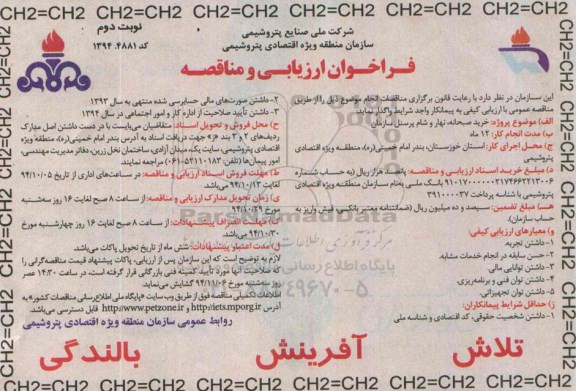 CH2=CH2 CH2=CH2 CH2=CH2 CH2=CH2 CH2=CH2 CH2=CH2
نوبت دوم
کد ۱۳۹۴.۴۸۸۱
شرکت ملی صنایع پتروشیمی
سازمان منطقه ویژه اقتصادی پتروشیمی
فراخوان ارزیابی و مناقصه
این سازمان در نظر دارد با رعایت قانون برگزاری مناقصات انجام موضوع ذیل را از طریق
مناقصه عمومی با ارزیابی کیفی به پیمانکار واجد شرایط واگذار نماید.
الف) موضوع پروژه: خرید صبحانه، نهار و شام پرسنل سازمان
ب) مدت انجام کار: ۱۲ ماه
ج) محل اجرای کار: استان خوزستان، بندر امام خمینی(ره)، منطقه ویژه اقتصادی
پتروشیمی
د) مبلغ خرید اسناد ارزیابی و مناقصه: پانصد هزار ریال (به حساب شماره
۲۱۷۴۶۶۲۲۱۳۰۰۶ بانک ملی بنام سازمان منطقه ویژه اقتصادی
پتروشیمی با شناسه پرداخت
مبلغ تضمین: سیصد و ده میلیون ریال (ضمانتنامه معتبر بانکی یا فیش واریز به
حساب سازمان).
و) معیارهای ارزیابی کیفی:
۱- داشتن تجربه
۲- حسن سابقه در انجام خدمات مشابه.
۳- داشتن توانایی مالی.
۴- داشتن توان فنی و برنامه‌ریزی.
۵- داشتن توان تجهیزاتی.
ز) حداقل شرایط پیمانکاران:
۱- داشتن شخصیت حقوقی، کد اقتصادی و شناسه ملی
۲- داشتن صورت‌های مالی حسابرسی شده منتهی به سال ۱۳۹۳
۳- داشتن تأیید صلاحیت از اداره کار و امور اجتماعی در سال ۱۳۹۴
ح) محل فروش و تحویل اسناد: متقاضیان می‌بایست با در دست داشتن اصل مدارک
ردیف‌های ۲ و ۳ بند «ز» جهت دریافت اسناد به آدرس بندر امام خمینی(ره)، منطقه ویژه
اقتصادی پتروشیمی، سایت یک، میدان آزادی، ساختمان نخل زرین، دفاتر مدیریت مهندسی،
امور پیمان‌ها (تلفن: ۵۲۱۱۰۱۸۳-۰۶۱) مراجعه نمایند.
ط) مهلت فروش اسناد ارزیابی و مناقصه: در ساعت‌های اداری از تاریخ ۹۴/۱۰/۰۵
لغایت ۹۴/۱۰/۱۳ می‌باشد.
ی) زمان تحویل مدارک ارزیابی و مناقصه: از ساعت ۸ صبح لغایت ۱۶ روز سه‌شنبه
مورخ ۹۴/۱۰/۲۹
ک) مهلت تسلیم پیشنهادات: از ساعت ۸ صبح لغایت ۱۶ روز چهارشنبه مورخ
۹۴/۱۰/۳۰ می‌باشد.
ل) مدت اعتبار پیشنهادات: شش ماه از تاریخ تحویل پاکات می‌باشد.
لازم به توضیح است که این سازمان پس از ارزیابی، پاکات پیشنهاد قیمت مناقصه‌گرانی را
که صلاحیت آنها مورد تأیید کمیته فنی بازرگانی قرار گرفته است، در ساعت ۱۴:۳۰ عصر
روز سه‌شنبه مورخ ۹۴/۱۱/۰۶ گشایش می‌نماید.
اطلاعات تکمیلی مناقصه فوق از طریق وب سایت «پایگاه ملی اطلاع‌رسانی مناقصات کشور» به
آدرس http://iets.mporg.ir و http://www.petzone.ir قابل دسترسی می‌باشد.
روابط عمومی سازمان منطقه ویژه اقتصادی پتروشیمی
تلاش آفرینش بالندگی
CH2=CH2 CH2=CH2 CH2=CH2 CH2=CH2 CH2=CH2 CH2=CH2